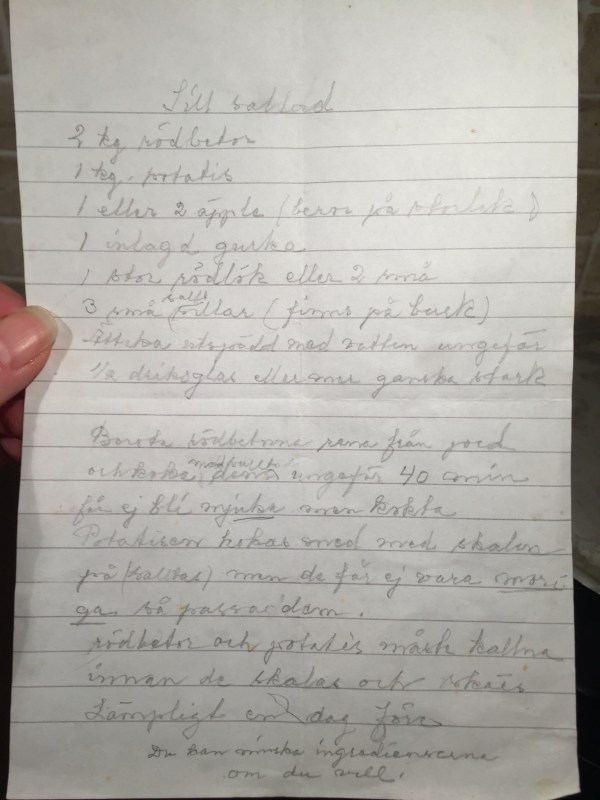 Sill sallad
2 kg rödbetor
1 kg. potatis
1 eller 2 äpple (beror på storlek)
1 inlagd gurka
1 stor rödlök eller 2 små
3 små salt sillar (finns på burk)
Ättika utspädd med vatten ungefär
1/2 dricksglas eller mer ganska stark
Borsta rödbetorna rena från jord
och koka ungefär 40 min
får ej bli mjuka men kokta
Potatisen kokas med med skalen
på (saltas) men de får ej vara mosi
ga så passa dem.
rödbetor och potatis måste kallna
innan de skalas och
Lämpligt en dag före
Du kan minska ingredienserna
om du vill.